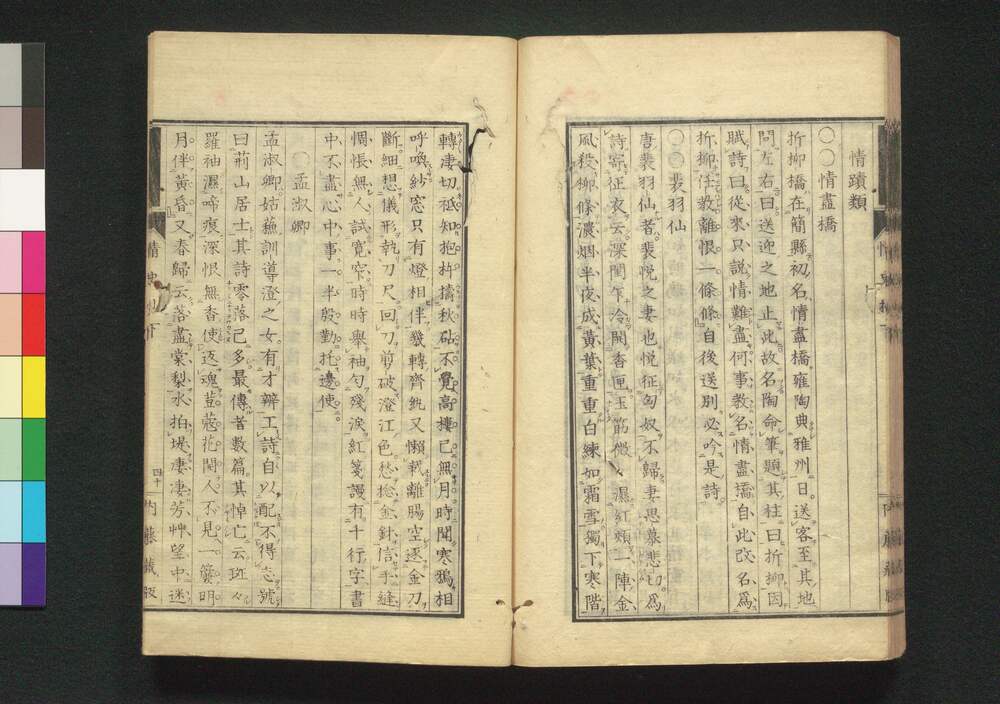 情蹟類
〇〇情盡橋
折柳橋在簡縣初名情盡橋雍陶典雅州日送客至其地
問左右曰送迎之地止此故名陶命筆題其柱曰折柳因
賦詩曰從來只說情難盡何事教名情盡橋自此改名為
折柳任教離恨一條條自後送別必吟是詩
〇〇裴羽仙
唐裴羽仙者裴悅之妻也悅征匈奴不歸妻思慕悲切為
詩寄征衣云深閨乍冷開香匣玉筯微々濕紅頰一陣金
風殺柳條濃烟半夜成黃葉重重白練如霜雪獨下寒階
轉凄切祗知抱杵搗秋砧不覺高樓已無月時聞寒鴉相
呼喚紗窓只有燈相伴幾轉齊紈又懶裁離腸空逐金刀
斷細想儀形執刀尺回刀剪破澄江色愁捻金針信手縫
惆悵無人試寛窄時時舉袖勻殘淚紅箋謾有千行字書
中不盡心中事一半殷勤托邊使
〇孟淑卿
孟淑卿姑蘇訓導澄之女有才辨工詩自以配不得志號
曰荊山居士其詩零落已多最傳者數篇其悼亡云斑々
羅袖濕啼痕深恨無香使返魂荳蔻花開人不見一簾明
月伴黃昏又春歸云落盡棠梨水拍堤凄凄芳艸望中迷
情史抄
四十
內藤藏版